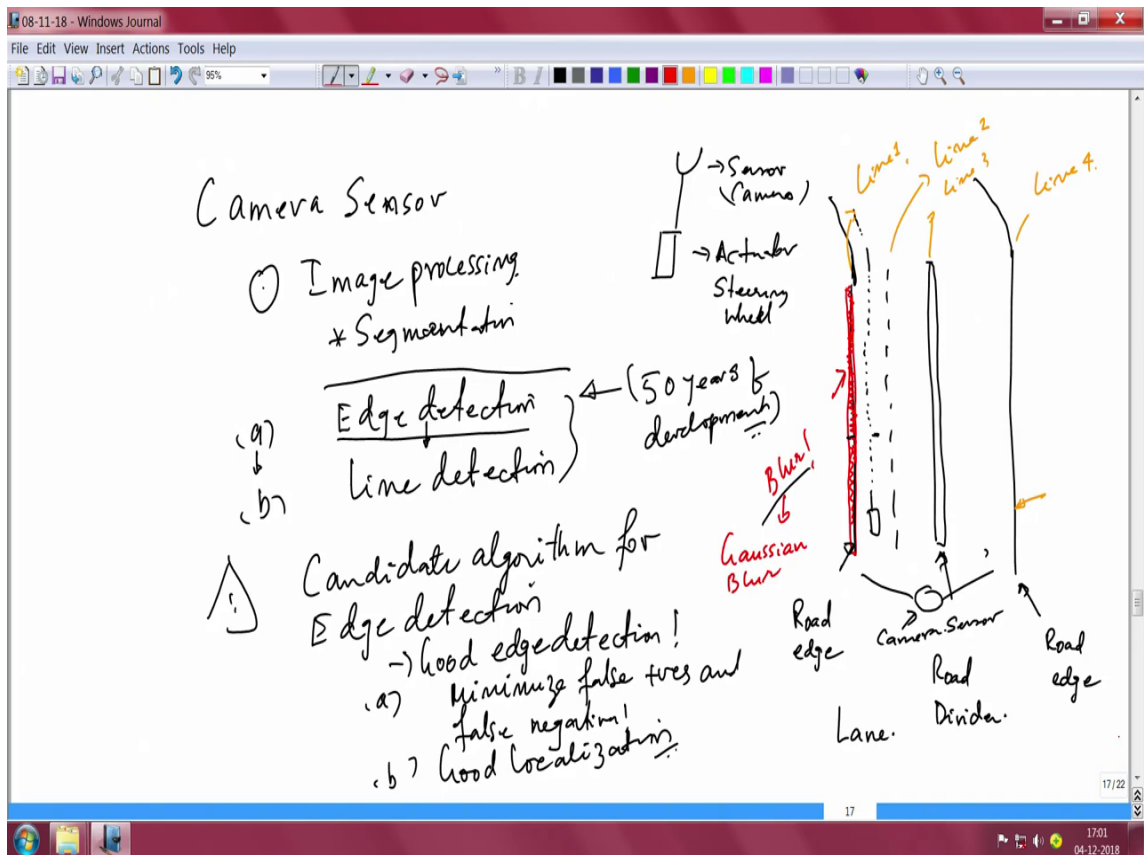 08-11-18 - Windows Journal
File Edit View Insert Actions Tools Help
95%
B I
Camera Sensor
Image processing
* Segmentation
(a)
Edge detection
(b)
Line detection
(50 years of
development)
! Candidate algorithm for
Edge detection
→ Good edge detection!
(a) Minimize false +ves and
false negative!
(b) Good localization
→ Sensor
(Camera)
→ Actuator
Steering
wheel
Line 1.
Line 2
Line 3
Line 4.
Blur!
Gaussian
Blur
Road
edge
Camera Sensor
Road
Divider.
Road
edge
Lane.
17/22
17
17:01
04-12-2018